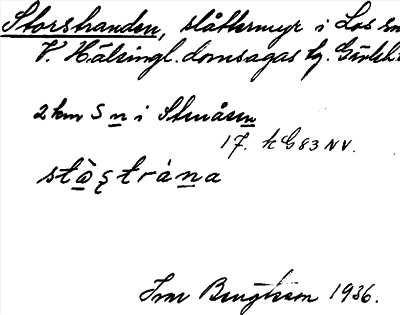 Storstranden, slåttermyr i Los sn
V. Hälsingl. domsagas tg. Gävleb
2 km S n i Stenåsen
17. k G83 NV.
stɷ̀ʂtrána
Ivar Bengtsson 1936.